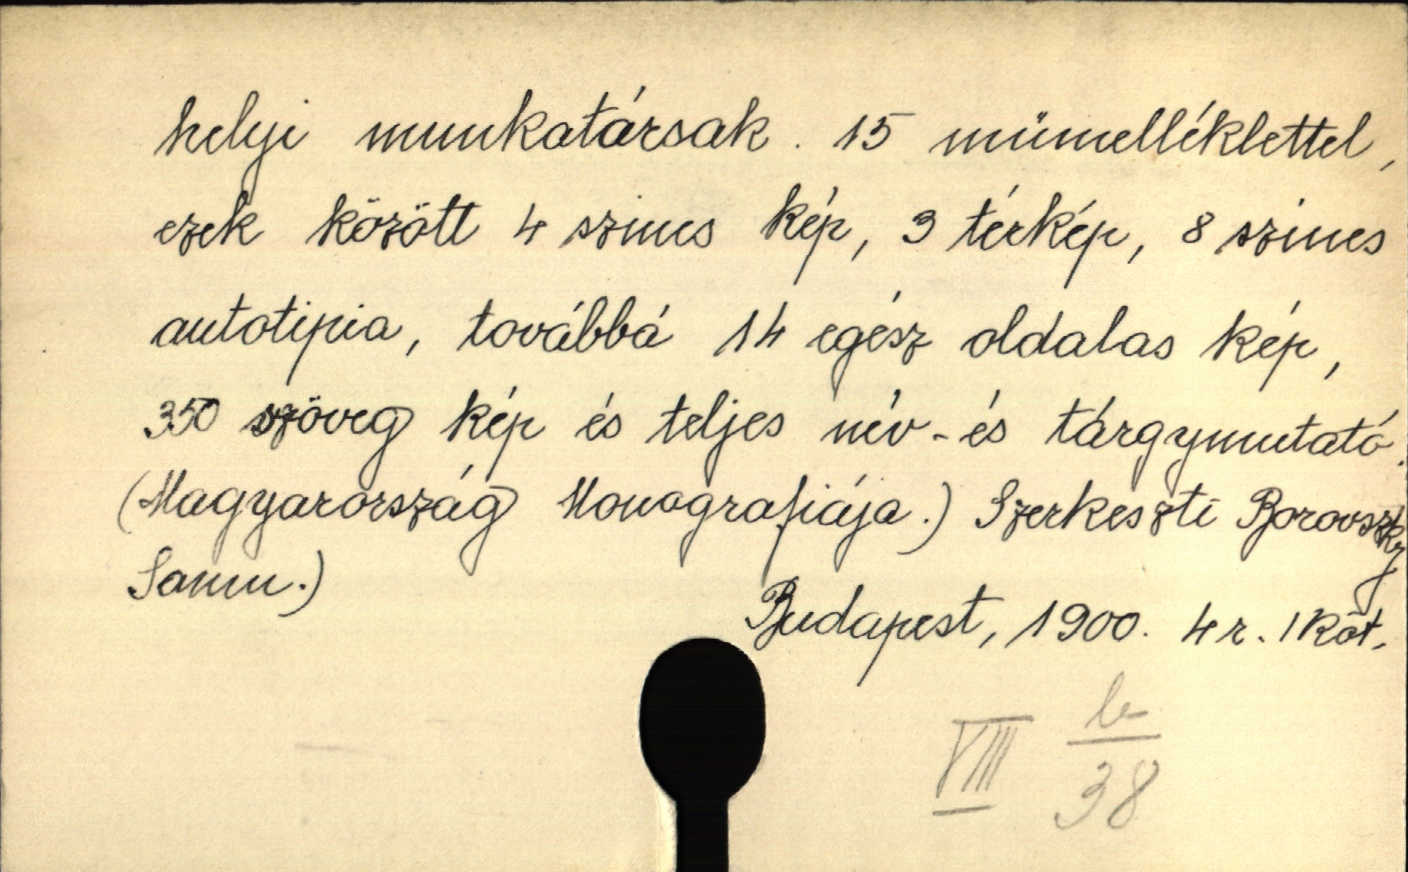 helyi munkatársak. 15 müméllékléttel,
ezek között 4 szines kép, 3 térkép, 8 szines
autotipia, továbbá 14 egész oldalas kép,
350 szöveg kép és teljes név- és tárgymutató.
(Magyarország Monografiája.) Szerkeszti Borovszky
Samu.)
Budapest, 1900. 4r. 1 Köt.
VIII b/38